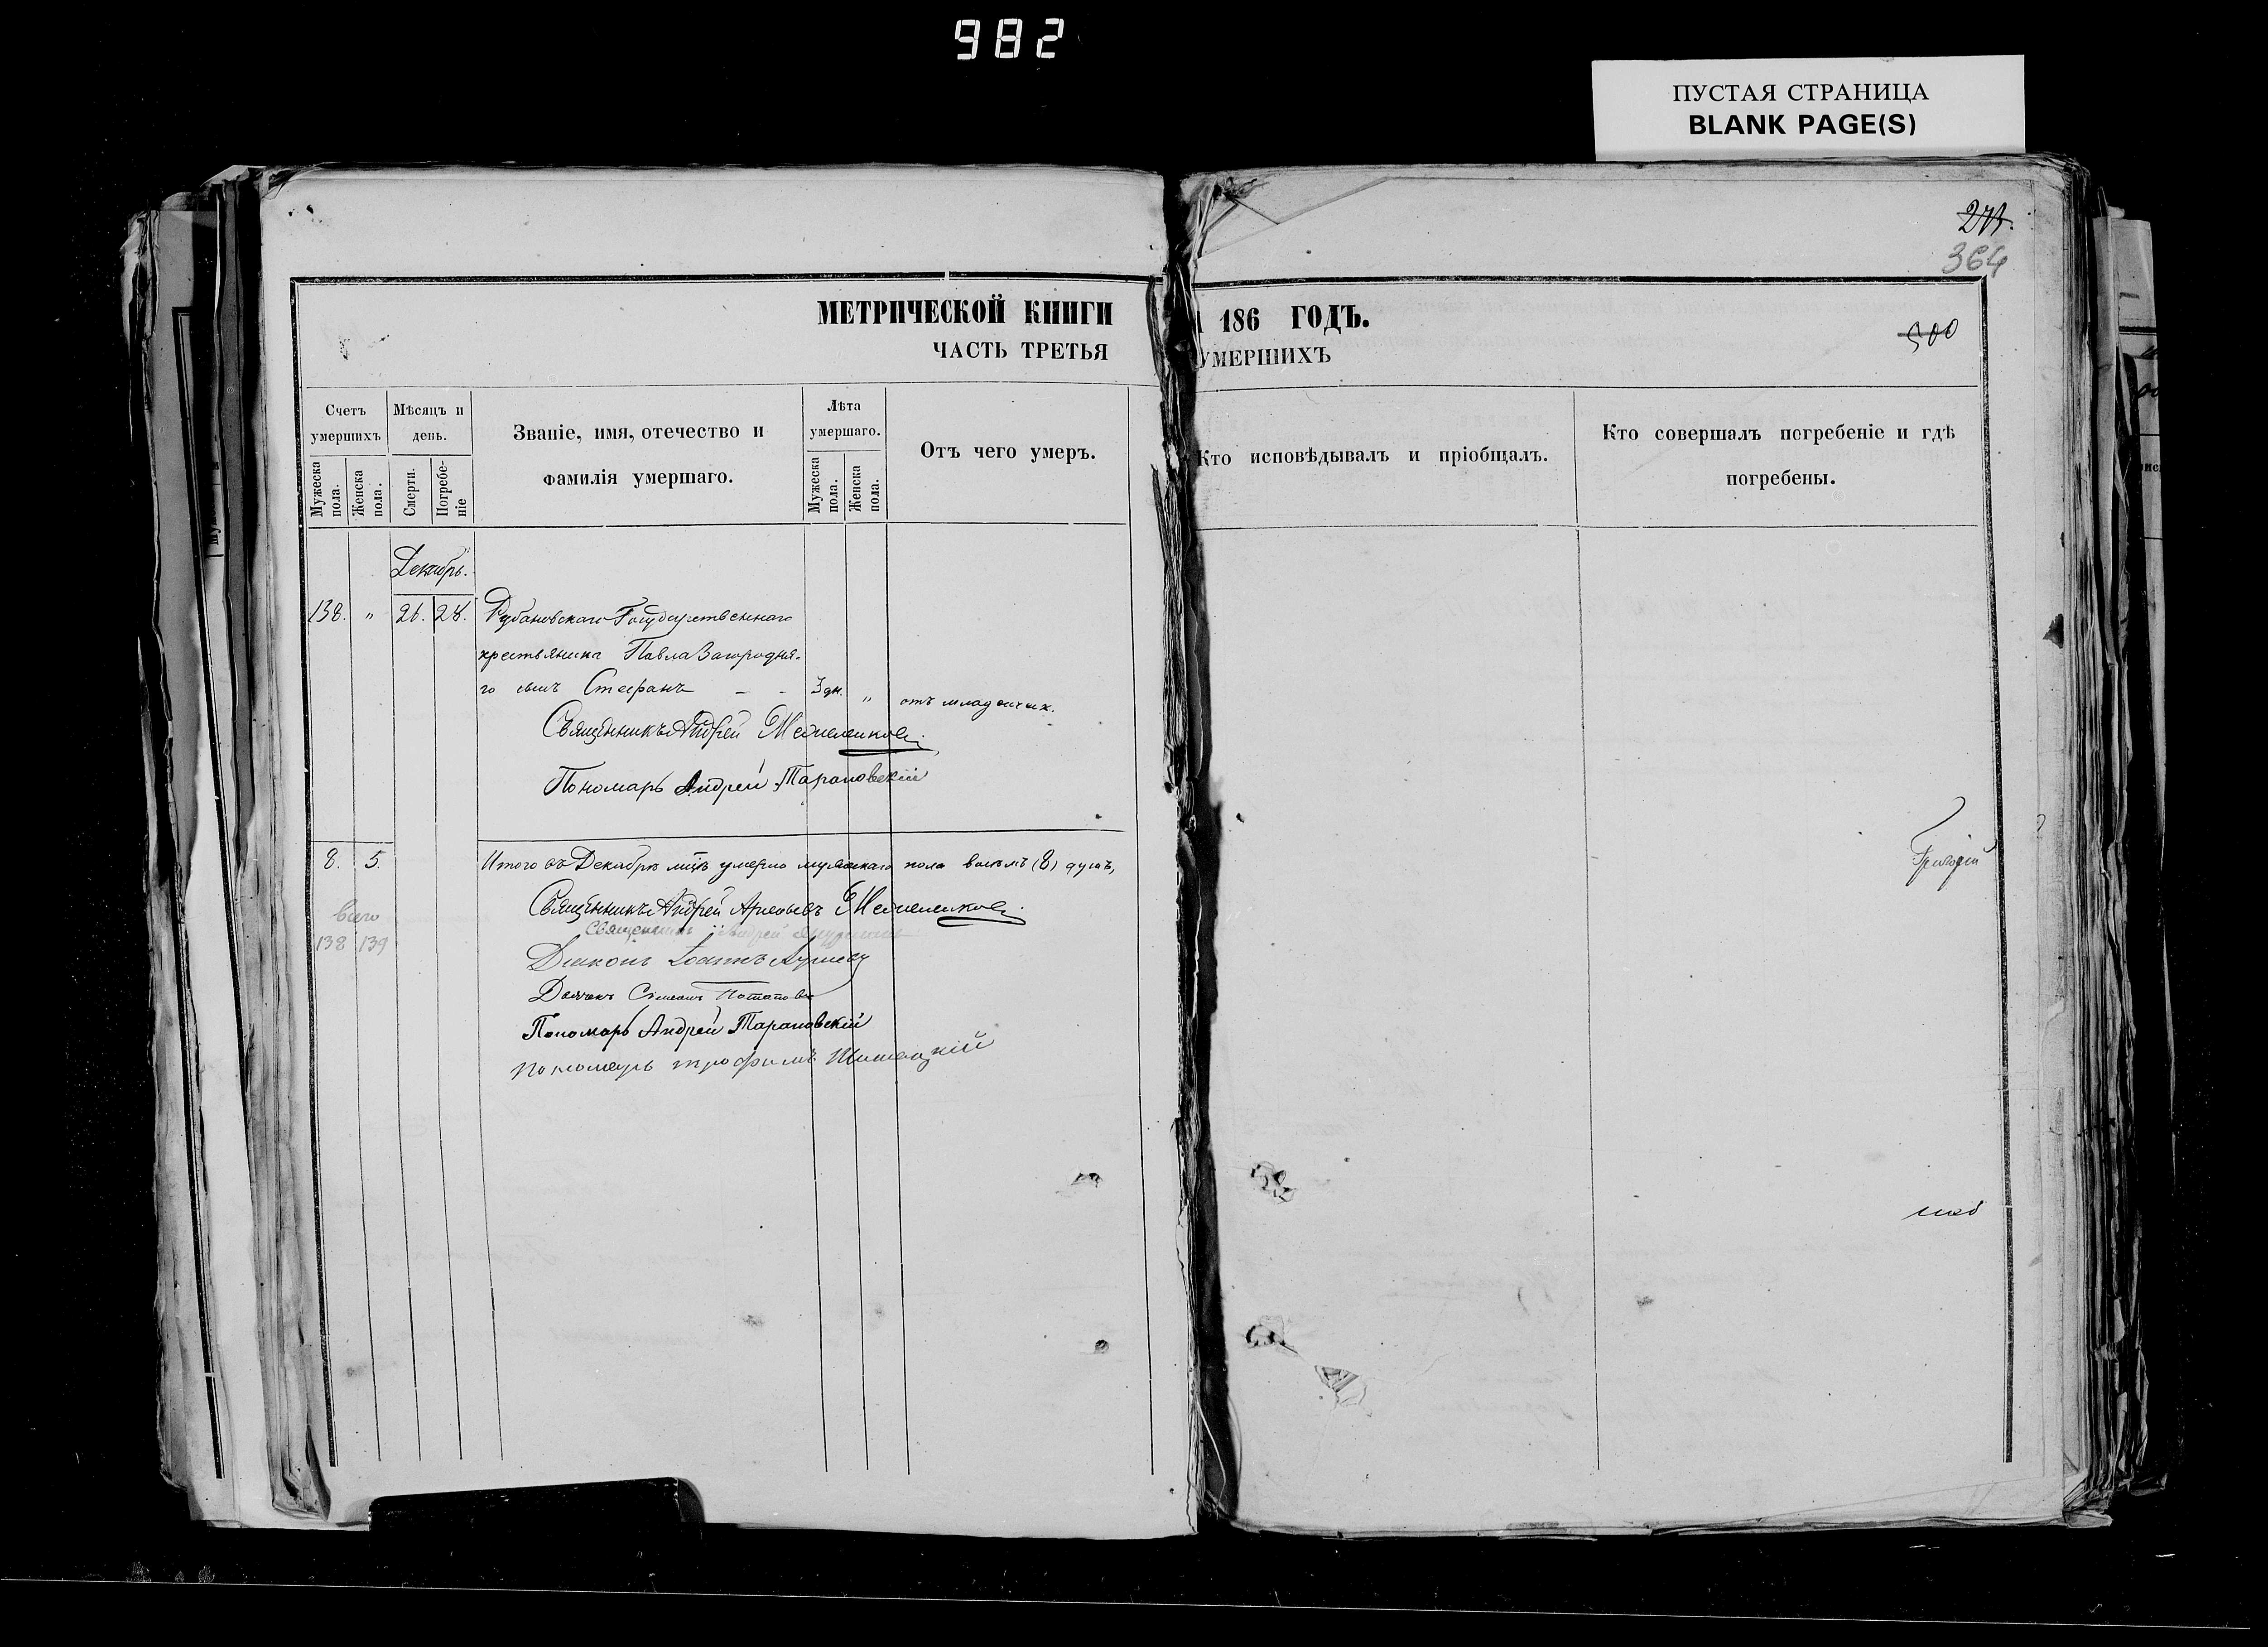 982
ПУСТАЯ СТРАНИЦА
BLANK PAGE(S)
274.
364
500
МЕТРИЧЕСКОЙ КНИГИ
186 ГОДЪ.
ЧАСТЬ ТРЕТЬЯ
УМЕРШИХЪ
Счетъ умершихъ
Мужеска пола.
Женска пола.
Мѣсяцъ и день.
Смерти.
Погребе-ніе
Званіе, имя, отечество и
фамилія умершаго.
Лѣта умершаго.
Мужеска пола.
Женска пола.
Отъ чего умеръ.
Кто исповѣдывалъ и пріобщалъ.
Кто совершалъ погребеніе и гдѣ
погребены.
Декабрь.
138. " 26. 28. Рубановскаго Государственнаго
крестьянина Павла Загородня-
го сынъ Стефанъ - - 3 дн. " отъ младенчих.
Священникъ Андрей
Пономарь Андрей Тарановскій
8. 5. Итого въ Декабрѣ мцѣ умерло мужескаго пола восемь (8) душъ,
Священникъ Андрей
всего
138 139
Священникъ Андрей
Діаконъ Іоаннъ
Дьячокъ Симеонъ Потаповъ
Пономарь Андрей Тарановскій
Пономарь Трофимъ
Григорій